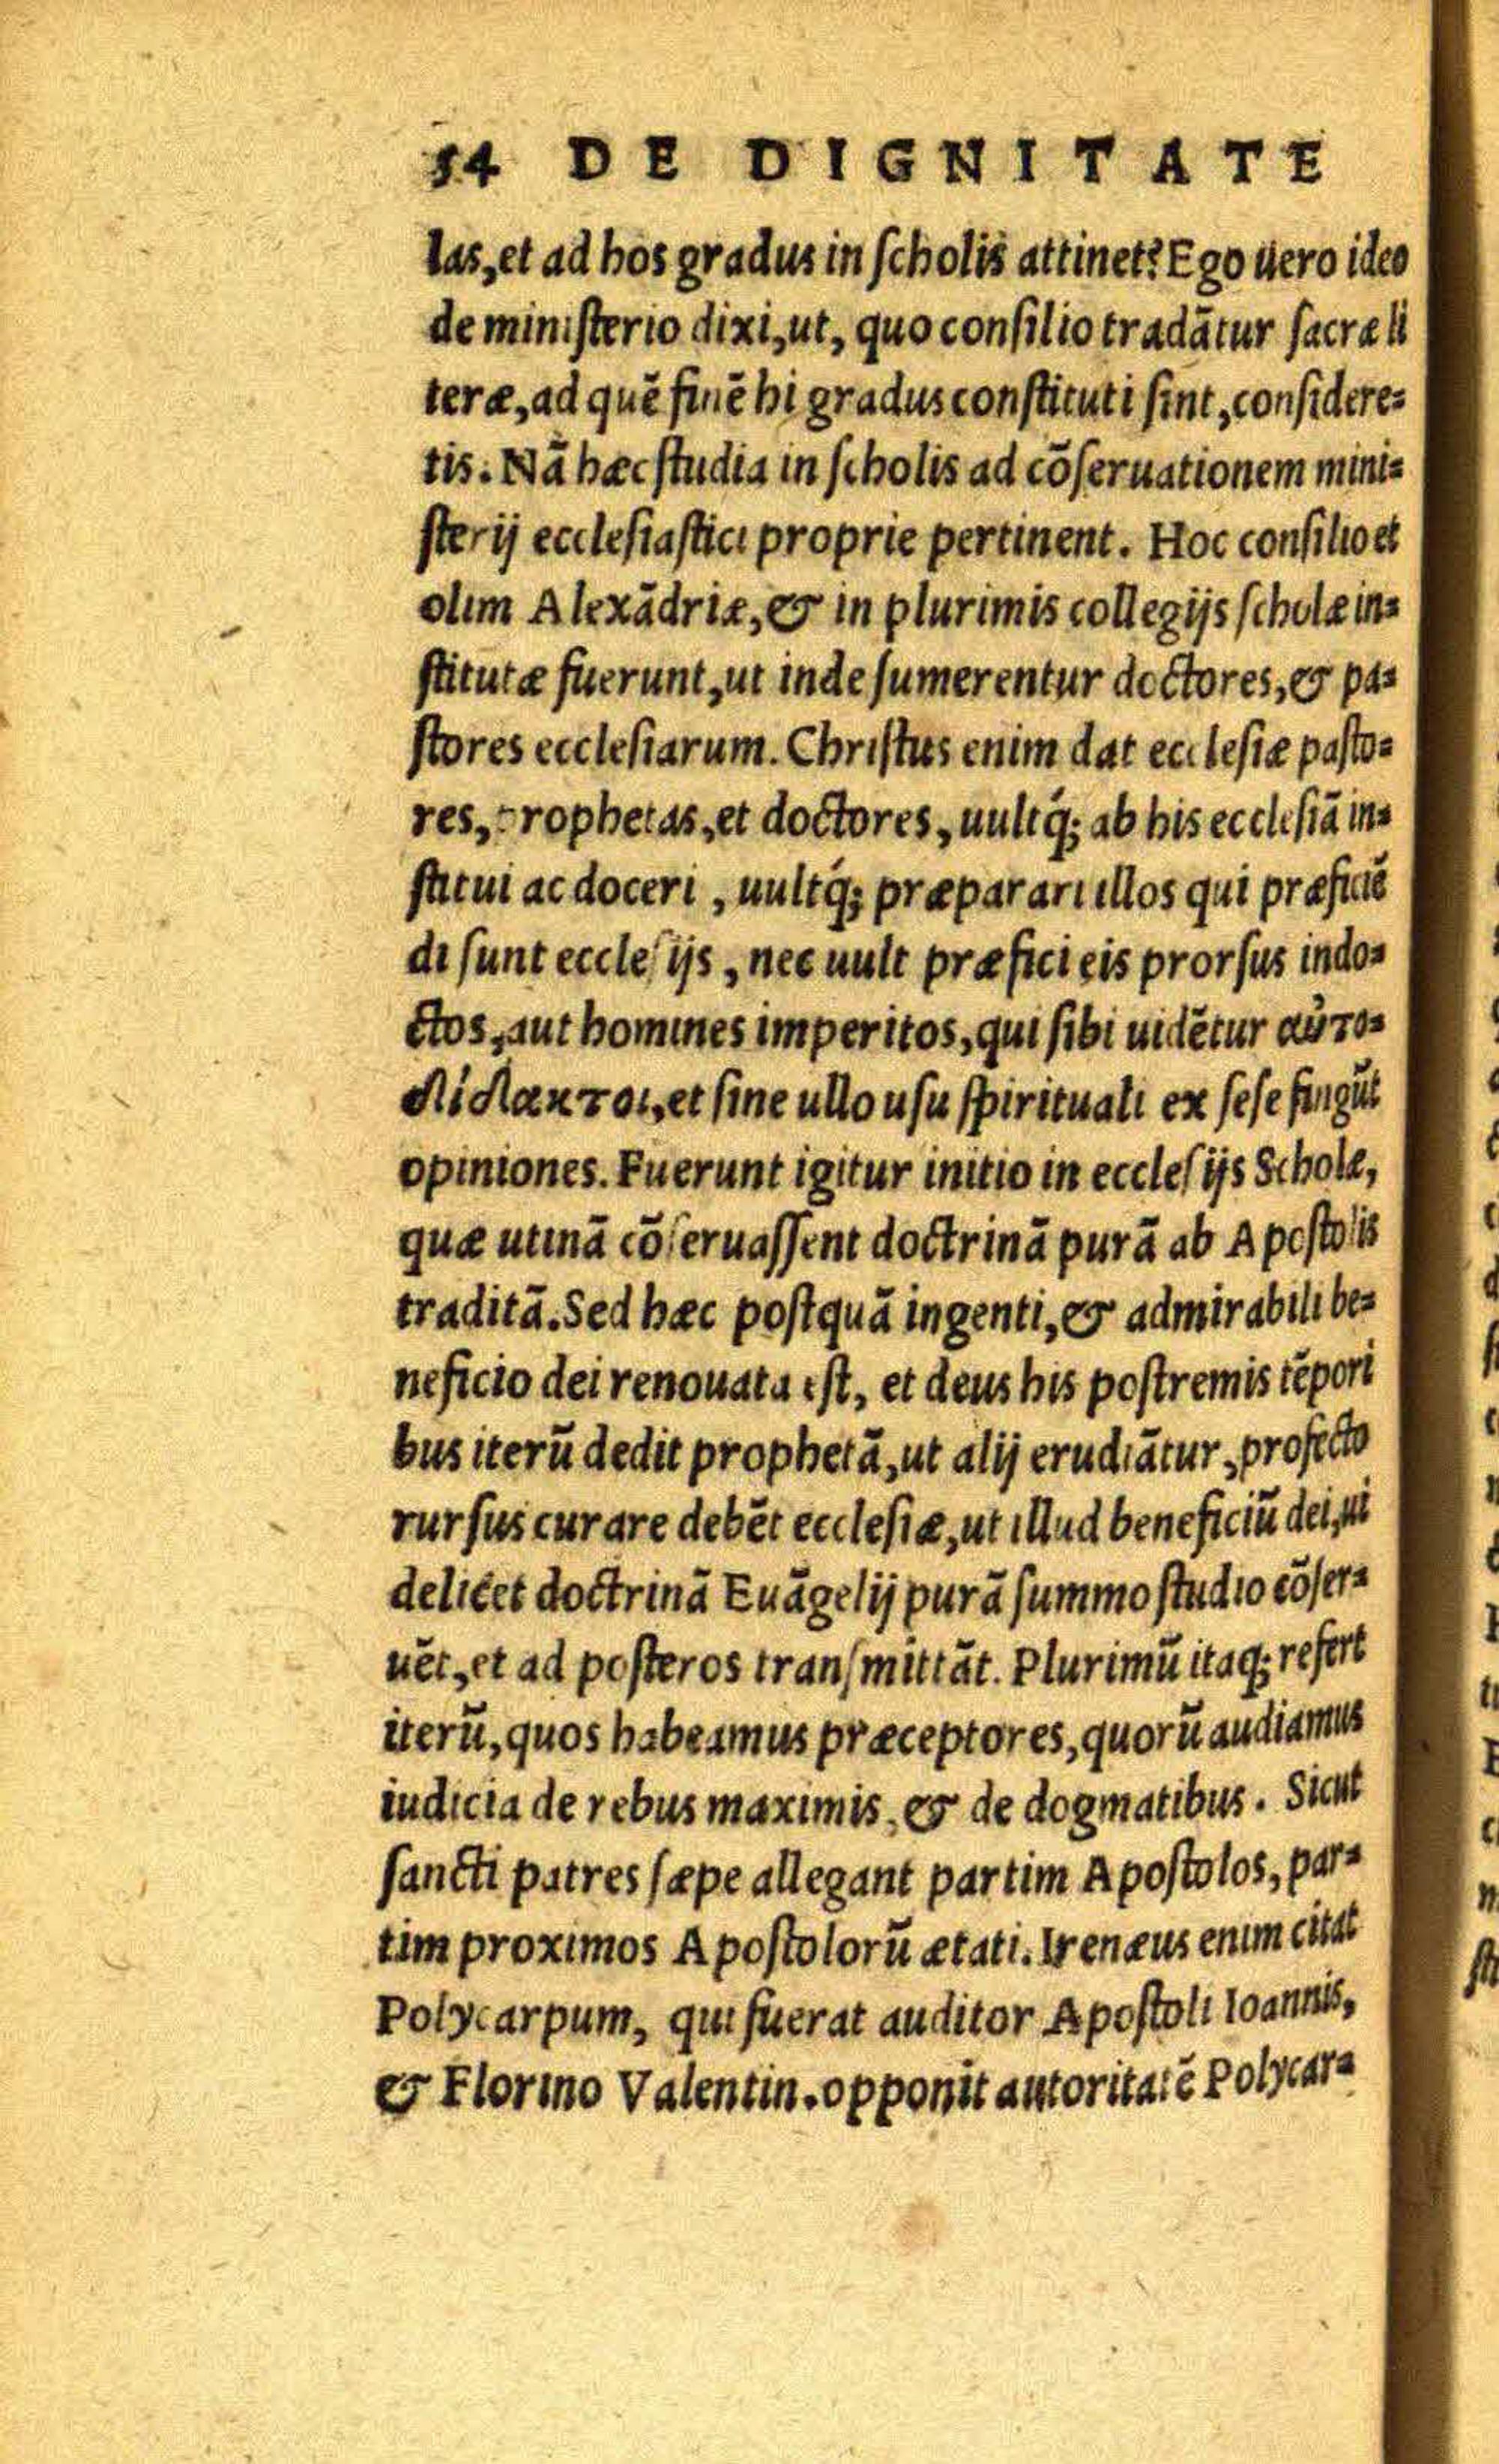 54 DE DIGNITATE
las, et ad hos gradus in ſcholis attinet? Ego uero ideo
de miniſterio dixi, ut, quo conſilio tradātur ſacræ li
teræ, ad quē finē hi gradus conſtituti ſint, conſidere=
tis. Nā hæc ſtudia in ſcholis ad cōſeruationem mini=
ſterij eccleſiaſtici proprie pertinent. Hoc conſilio et
olim Alexādriæ, & in plurimis collegijs ſcholæ in=
ſtitutæ fuerunt, ut inde ſumerentur doctores, & pa=
ſtores eccleſiarum. Chriſtus enim dat eccleſiæ paſto=
res, prophetas, et doctores, uultq́; ab his eccleſiā in=
ſtitui ac doceri, uultq́; præparari illos qui præficiē
di ſunt eccleſijs, nec uult præfici eis prorſus indo=
ctos, aut homines imperitos, qui ſibi uidētur αὐτο=
δίδακτοι, et ſine ullo uſu ſpirituali ex ſeſe fingūt
opiniones. Fuerunt igitur initio in eccleſijs Scholæ,
quæ utinā cōſeruaſſent doctrinā purā ab Apoſtolis
traditā. Sed hæc poſtquā ingenti, & admirabili be=
neficio dei renouata eſt, et deus his poſtremis tēpori
bus iterū dedit prophetā, ut alij erudiātur, profecto
rurſus curare debēt eccleſiæ, ut illud beneficiū dei, ui
delicet doctrinā Euāgelij purā ſummo ſtudio cōſer=
uēt, et ad poſteros tranſmittāt. Plurimū itaq; refert
iterū, quos habeamus præceptores, quorū audiamus
iudicia de rebus maximis, & de dogmatibus. Sicut
ſancti patres ſæpe allegant partim Apoſtolos, par=
tim proximos Apoſtolorū ætati. Irenæus enim citat
Polycarpum, qui fuerat auditor Apoſtoli Ioannis,
& Florino Valentin. opponit autoritatē Polycar=